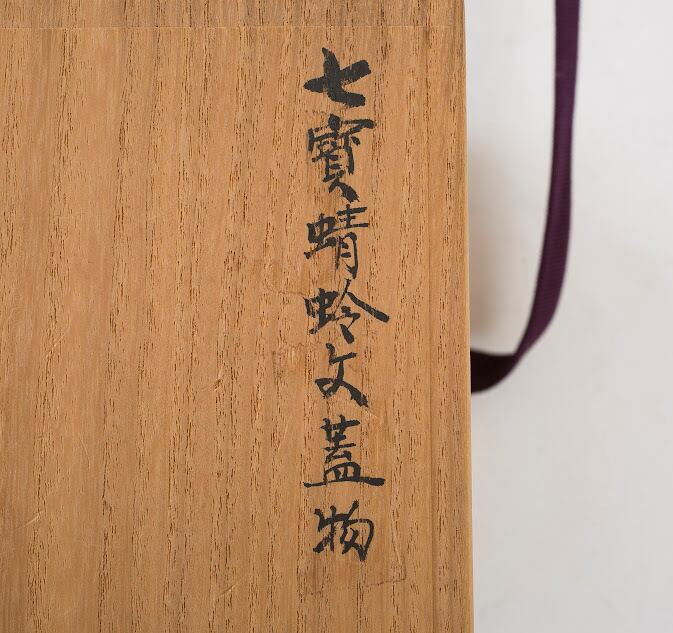 七寳蜻蛉文蓋物